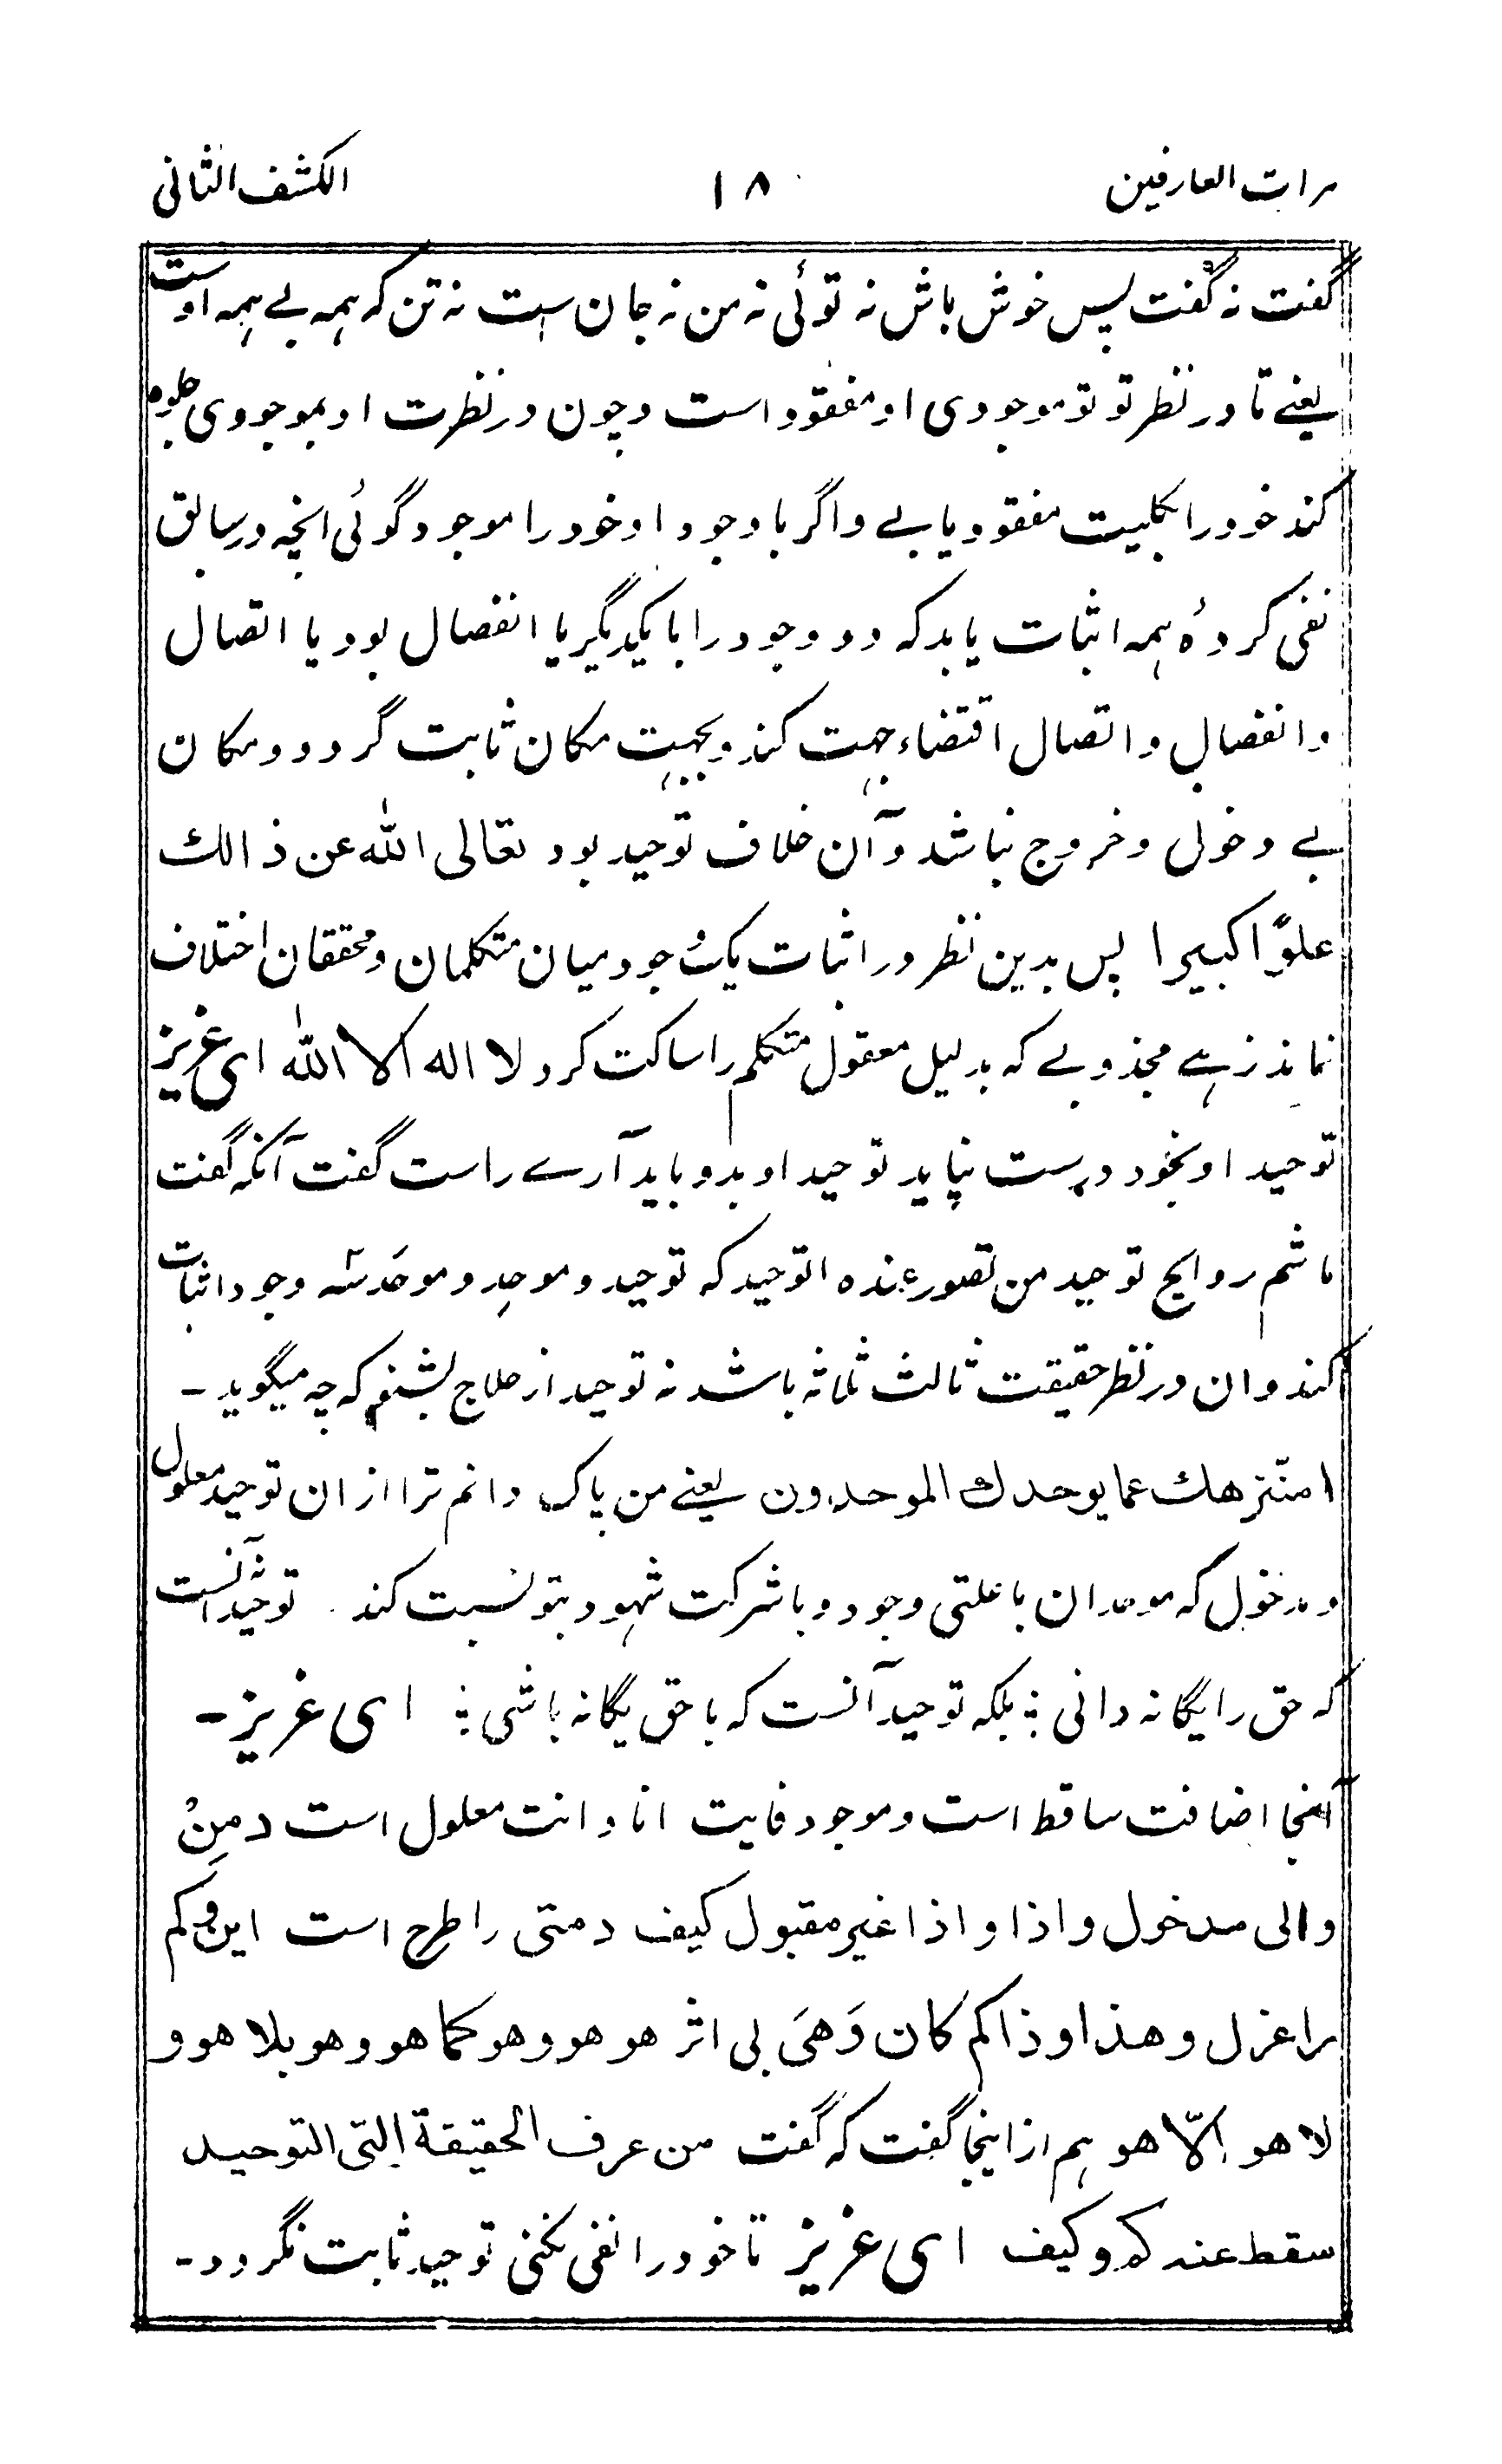 مرات العارفین ۱۸ الکشف الثانی
گفت نہ گفت پس خوش باش نہ توئی نہ من نہ جان ست نہ تن کہ ہمہ بے ہمہ اوست
یعنے تا در نظر تو تو موجودی او مفقود است و چون در نظرت او بموجودی جلوہ
کند خود را بکلیت مفقود یابے و اگر با وجود او خود را موجود گوئی انچہ در سابق
نفی کردہٴ ہمہ اثبات یابد کہ دو وجود را با یکدیگر یا انفصال بود یا اتصال
و انفصال و اتصال اقتضاء جہت کند و بجہت مکان ثابت گردد و مکان
بے دخول و خروج نباشد و آن خلاف توحید بود تعالی اللہ عن ذالك
علوًّا کبیرا پس بدین نظر در اثبات یک وجود میان متکلمان و محققان اختلاف
نماند زہے مجذوبے کہ بدلیل معقول متکلم را ساکت کرد لا الہ الا اللہ ای عزیز
توحید او بخود درست نیاید توحید او بدو باید آرے راست گفت آنکہ گفت
ما شم روایح توحید من تصور عندہ التوحید کہ توحید و موحِد و موحَد سہ وجود اثبات
کند و ان در نظر حقیقت ثالث ثلاثہ باشد نہ توحید از حلاج بشنو کہ چہ میگوید -
انزهك عما یوحدك الموحدون یعنے من پاک دانم ترا از ان توحید معلول
و مدخول کہ موحدان با علتی وجود و با شرکت شہود بتو نسبت کند توحید نہ آنست
کہ حق را یگانہ دانی ؛ بلکہ توحید آنست کہ با حق یگانہ باشی ؛ ای عزیز -
آنجا اضافت ساقط است و موجود فایت انا و انت معلول است و مِنْ
والی مدخول و اذا و اذا غیر مقبول کیف و متی را طرح است این و کم
را عزل و هذا و ذا کم کان وَهیَ بی اثر هو هو و هو کما هو و هو بلا هو و
لا هو الّا هو ہم از اینجا گفت کہ گفت من عرف الحقیقة التی التوحید
سقط عنه کم و کیف ای عزیز تا خود را نفی نکنی توحید ثابت نگردد -